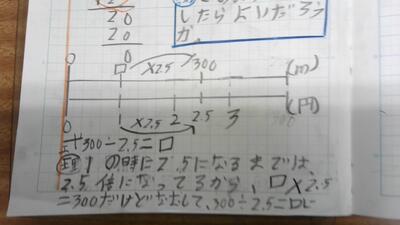 20
20
0
したらよいだろう
か。
0 □ ×2.5 300 (m)
0 ×2.5 2 2.5 3 (円)
式 300÷2.5=□
理 1の時に2.5になるまでは、
2.5倍になってるから、□×2.5
=300だけど
300÷2.5=□に